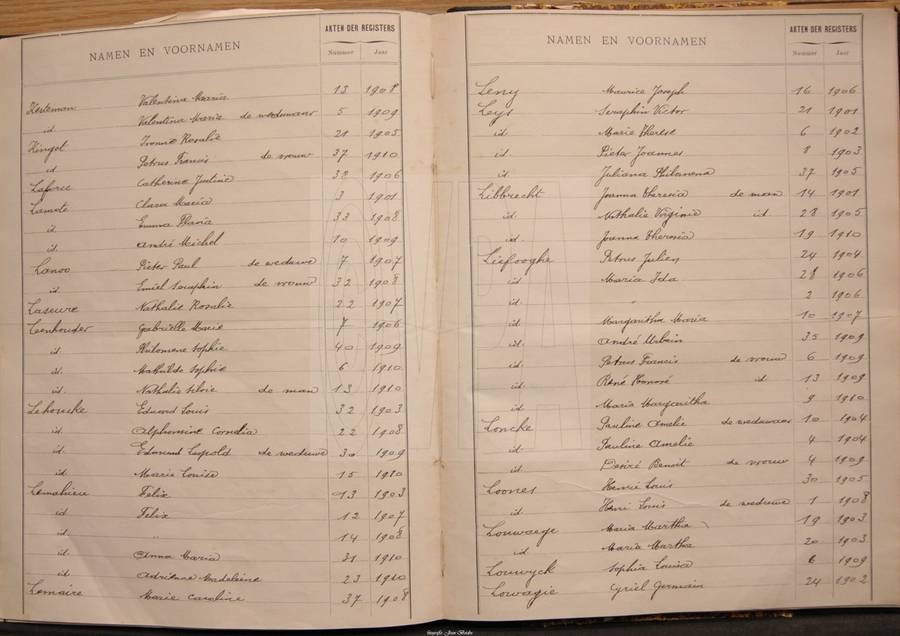 NAMEN EN VOORNAMEN AKTEN DER REGISTERS
Nummer Jaar
Valentina Maria 13 1908
id Valentina Maria de weduwaar 5 1909
Yvonne Rosalie 21 1905
id Petrus Francis de vrouw 37 1910
Laforce Catherine Justine 38 1906
Lamote Clara Maria 3 1901
id Emma Maria 33 1908
id André Michel 10 1909
Lanoo Pieter Paul de weduwe 7 1907
id Emiel Seraphin de vrouw 32 1908
Laseure Nathalie Rosalie 22 1907
Leenhouder Gabrielle Marie 7 1906
id Philomene Sophie 40 1909
id Mathilde Sophie 6 1910
id Nathalie Silvie de man 13 1910
Lehoucke Eduard Louis 32 1903
id Alphonsine Cornelia 22 1908
id Edmond Leopold de weduwe 30 1909
id Marie Louise 15 1910
Lemahieu Felix 13 1903
id Felix 12 1907
id " 14 1908
id Anna Maria 31 1910
id Adrienne Madeleine 23 1910
Lemaire Marie Caroline 37 1908
NAMEN EN VOORNAMEN AKTEN DER REGISTERS
Nummer Jaar
Leny Maurice Joseph 16 1906
Leys Seraphin Victor 21 1901
id Marie Therese 6 1902
id Pieter Joannes 8 1903
id Juliana Philomena 37 1905
Libbrecht Joanna Theresia de man 14 1901
id Nathalie Virginie id 28 1905
id Joanna Theresia 19 1910
Liefooghe Petrus Julien 24 1904
id Maria Ida 28 1906
id " 2 1906
id Margaritha Maria 10 1907
id André Urbain 35 1909
id Petrus Francis de vrouw 6 1909
id René Honoré id 13 1909
id Maria Margaritha 9 1910
Loncke Pauline Amelie de weduwaar 10 1904
id Pauline Amelie 4 1904
id Desiré Benoit de vrouw 4 1909
Loones Henri Louis 30 1905
id Henri Louis de weduwe 1 1908
Louwaege Maria Martha 19 1903
id Maria Martha 20 1903
Louwyck Sophia Louisa 6 1909
Lowagie Cyriel Germain 24 1902